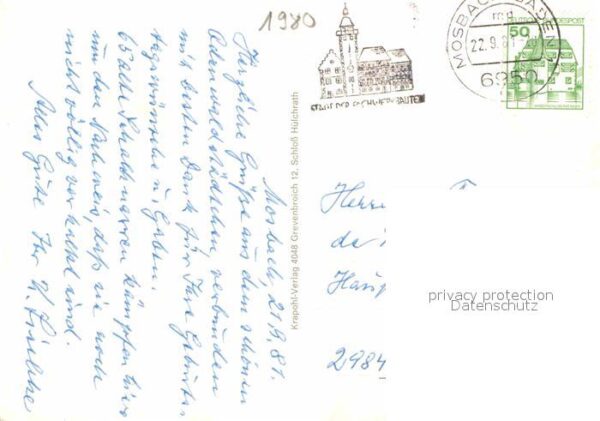 1980
MOSBACH, BADEN
mg
22.9.81
6950
50
DEUTSCHE BUNDESPOST
Mosbach, 21.9.81.
Herzliche Grüße aus dem schönen
Odenwaldstädtchen verbunden
mit besten Dank für Ihre Geburts-
tagswünsche u. Gaben.
65 alte Schachnarren kämpfen hier
um den Nachweis, daß sie noch
nicht völlig verkalkt sind.
Alles Gute Ihr
Krapohl-Verlag 4048 Grevenbroich 12, Schloß Hülchrath
Herr
Haup
2984
privacy protection
Datenschutz